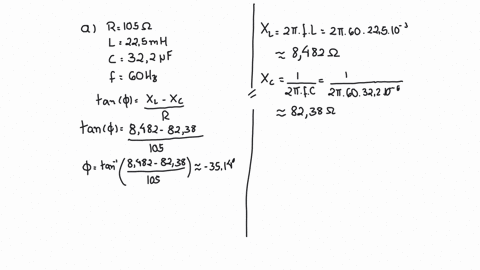 a) R = 105 Ω
L = 22,5 mH
C = 32,2 μF
f = 60 Hz
tan(φ) = (X_L - X_C) / R
tan(φ) = (8,482 - 82,38) / 105
φ = tan⁻¹((8,482 - 82,38) / 105) ≈ -35.14°
X_L = 2π.f.L = 2π.60.22,5.10⁻³
≈ 8,482 Ω
X_C = 1 / (2π.f.C) = 1 / (2π.60.32,2.10⁻⁶)
≈ 82,38 Ω